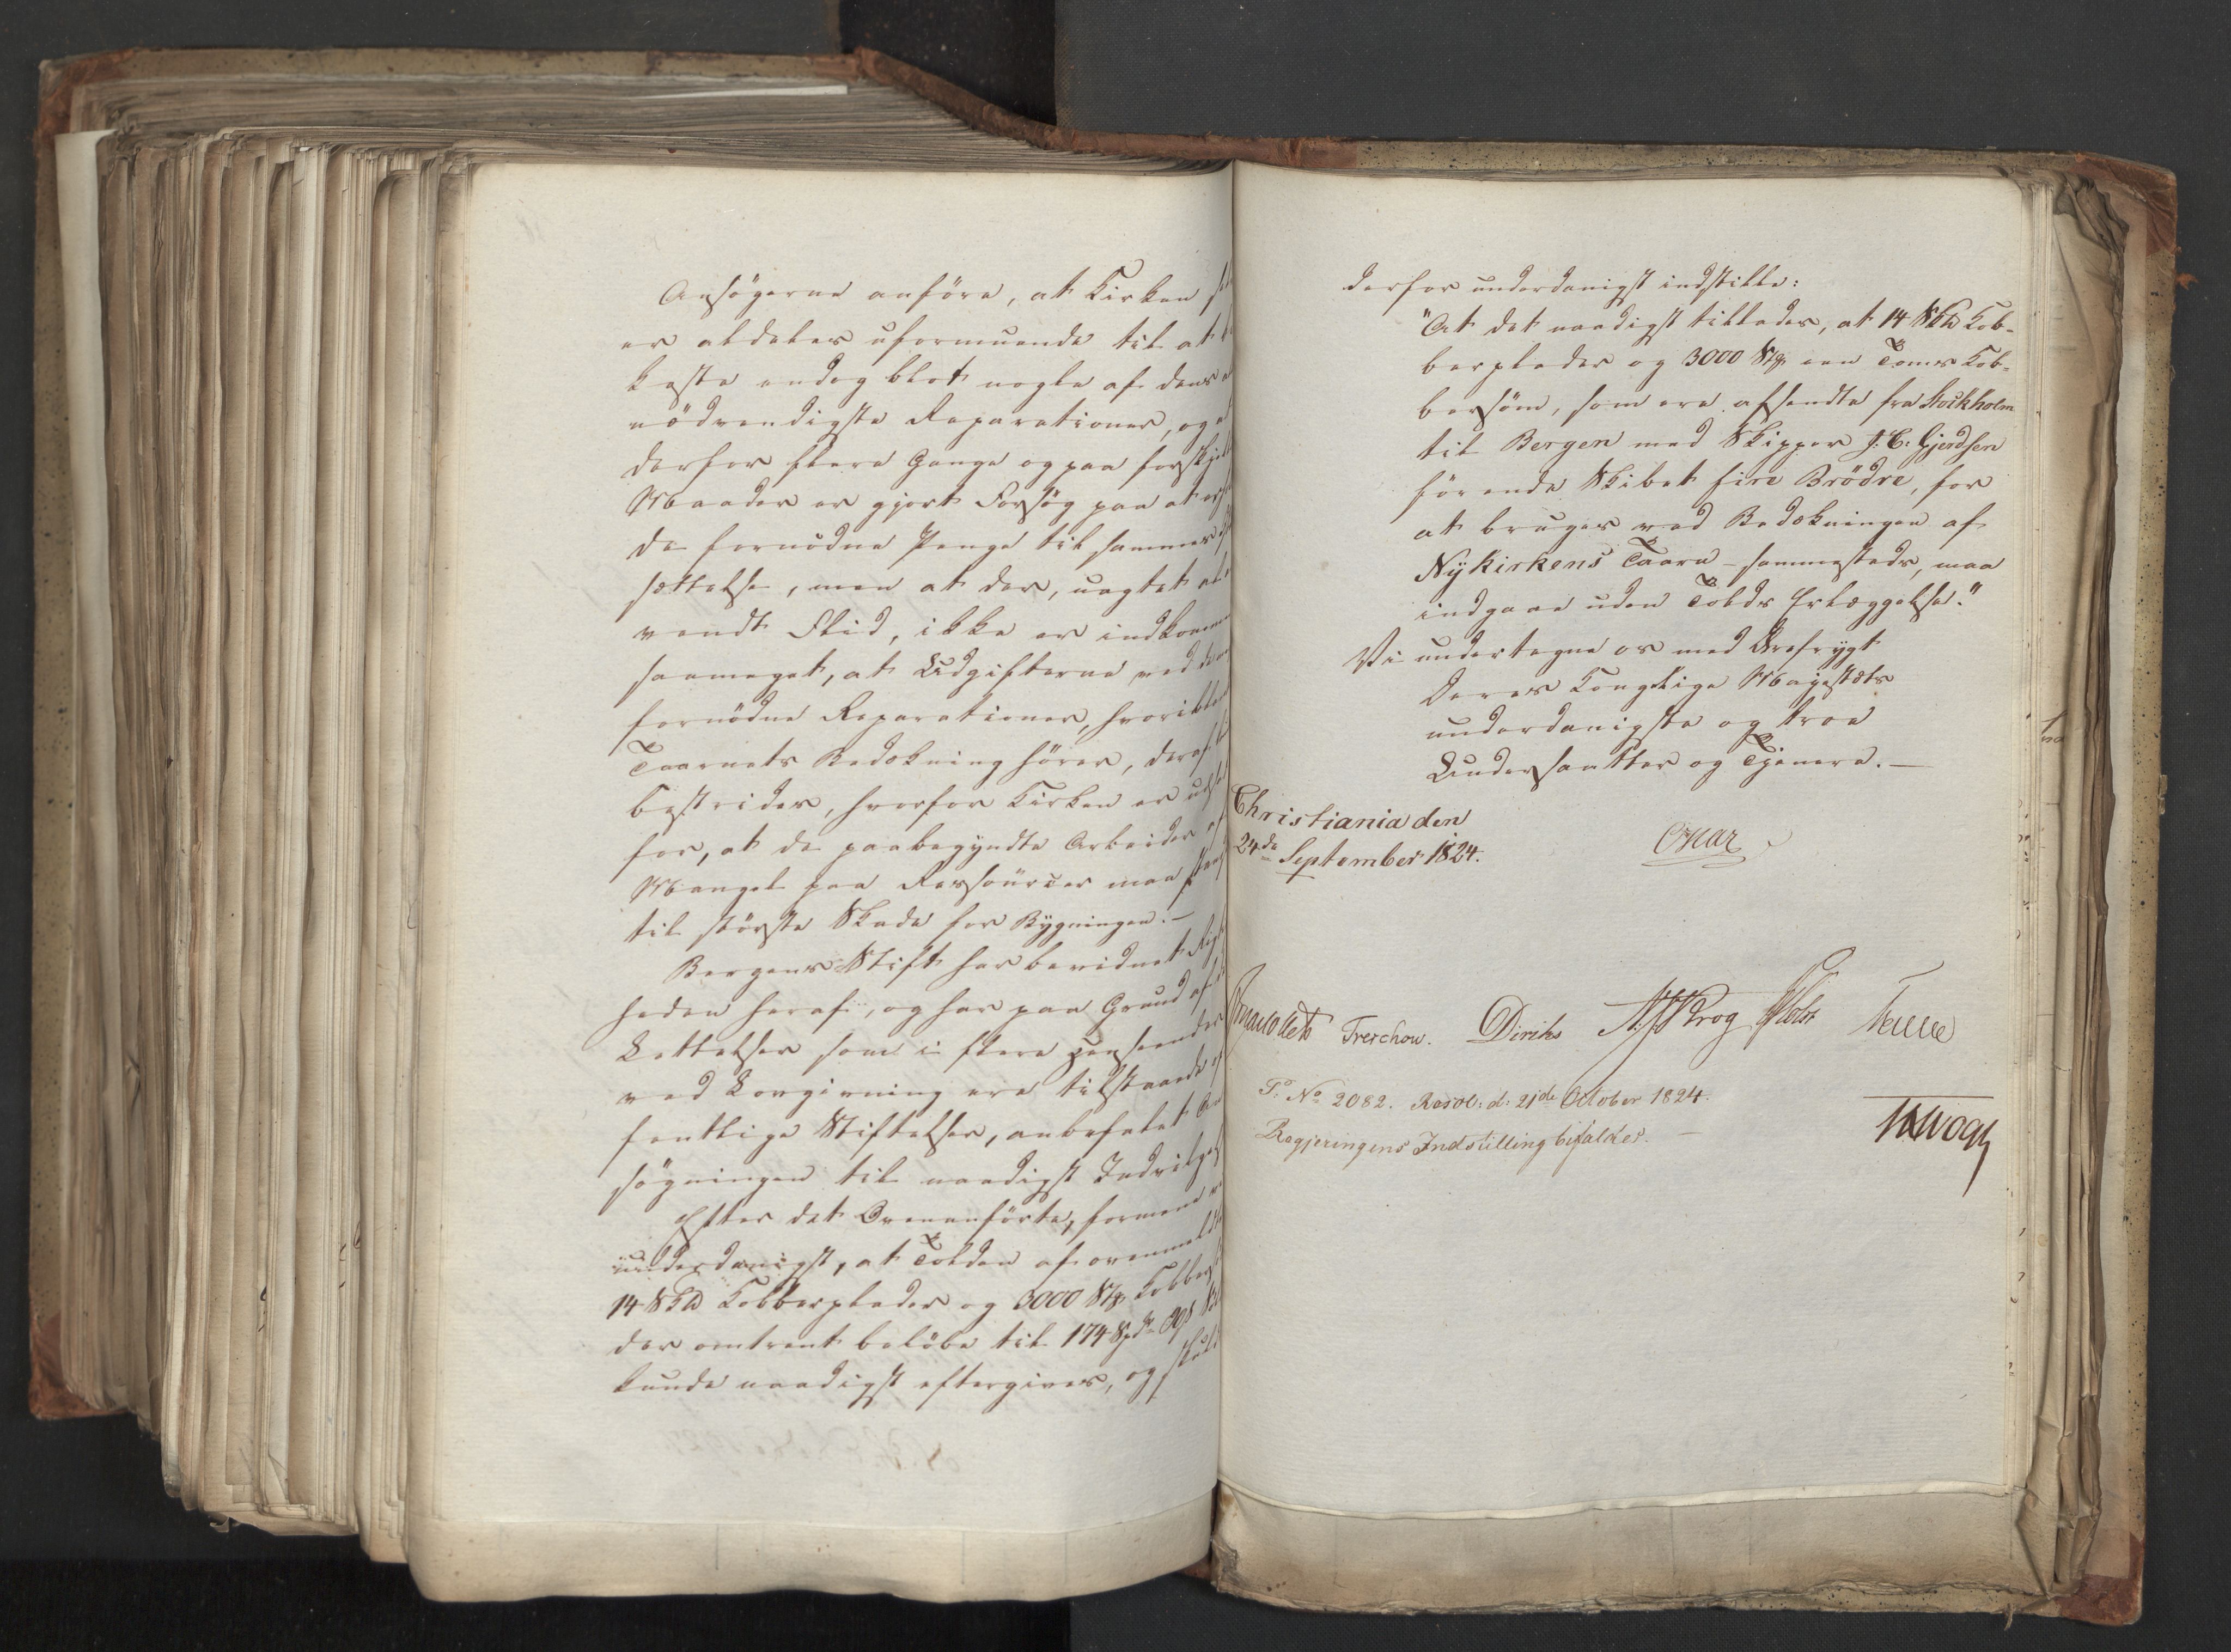 Ansögerne anföre, at Kirken
er aldeles uformuende til at
koste endog blot nogle af dens
nödvendigste Reparationer, og at
derfor flere Gange og paa forskjel
Maader er gjort Forsög paa at
de fornödne Penge til sammes
sættelse, men at der, uagtet al
vendt Flid, ikke er indkomme
saameget, at Udgifterne ved de
fornödne Reparationer, hvoriblan
Taarnets Bedækning hörer, deraf
bestrides, hvorfor Kirken er udsat
for, at de paabegyndte Arbeider af
Mangel paa Ressourcer maa
til störste Skade for Bygningen.-
Bergens Stift har bevidnet Rig
heden heraf, og har paa Grund af
Lettelser som i flere Henseender
ved Lovgivning ere tilstaaede of
fentlige Stiftelser, anbefalet An
sögningen til naadigst Indvilgelse
Efter det Ovenanförte, formene vi
underdanigst, at Tolden af ovenmeldte
14 SkĦ Kobberplader og 3000 Stkr Kobber
der omtrent belöbe til 174 Spd
kunde naadigst eftergives, og skul
derfor underdanigst indstille:
"At det naadigst tillades, at 14 SkĦ Kob-
berplader og 3000 Stkr een Toms Kob-
bersöm, som ere afsendte fra Stockholm
til Bergen med Skipper J. C. Gjerdsen
förende Skibet fire Brödre, for
at bruges ved Bedækningen af
Nÿkirkens Taarn sammesteds, maa
indgaae uden Tolds Erlæggelse."
Vi undertegne os med Ærefrygt
Deres Kongelige Majestæts
underdanigste og troe
Undersaatter og Tjenere.-
Christiania den
24de September 1824.
Oscar
Sommerfeldt Treschow. Diriks Krog Holst Fasting
P. No 2082. Resol: d: 21de October 1824.
Regjeringens Indstilling bifaldes.-
Vogt